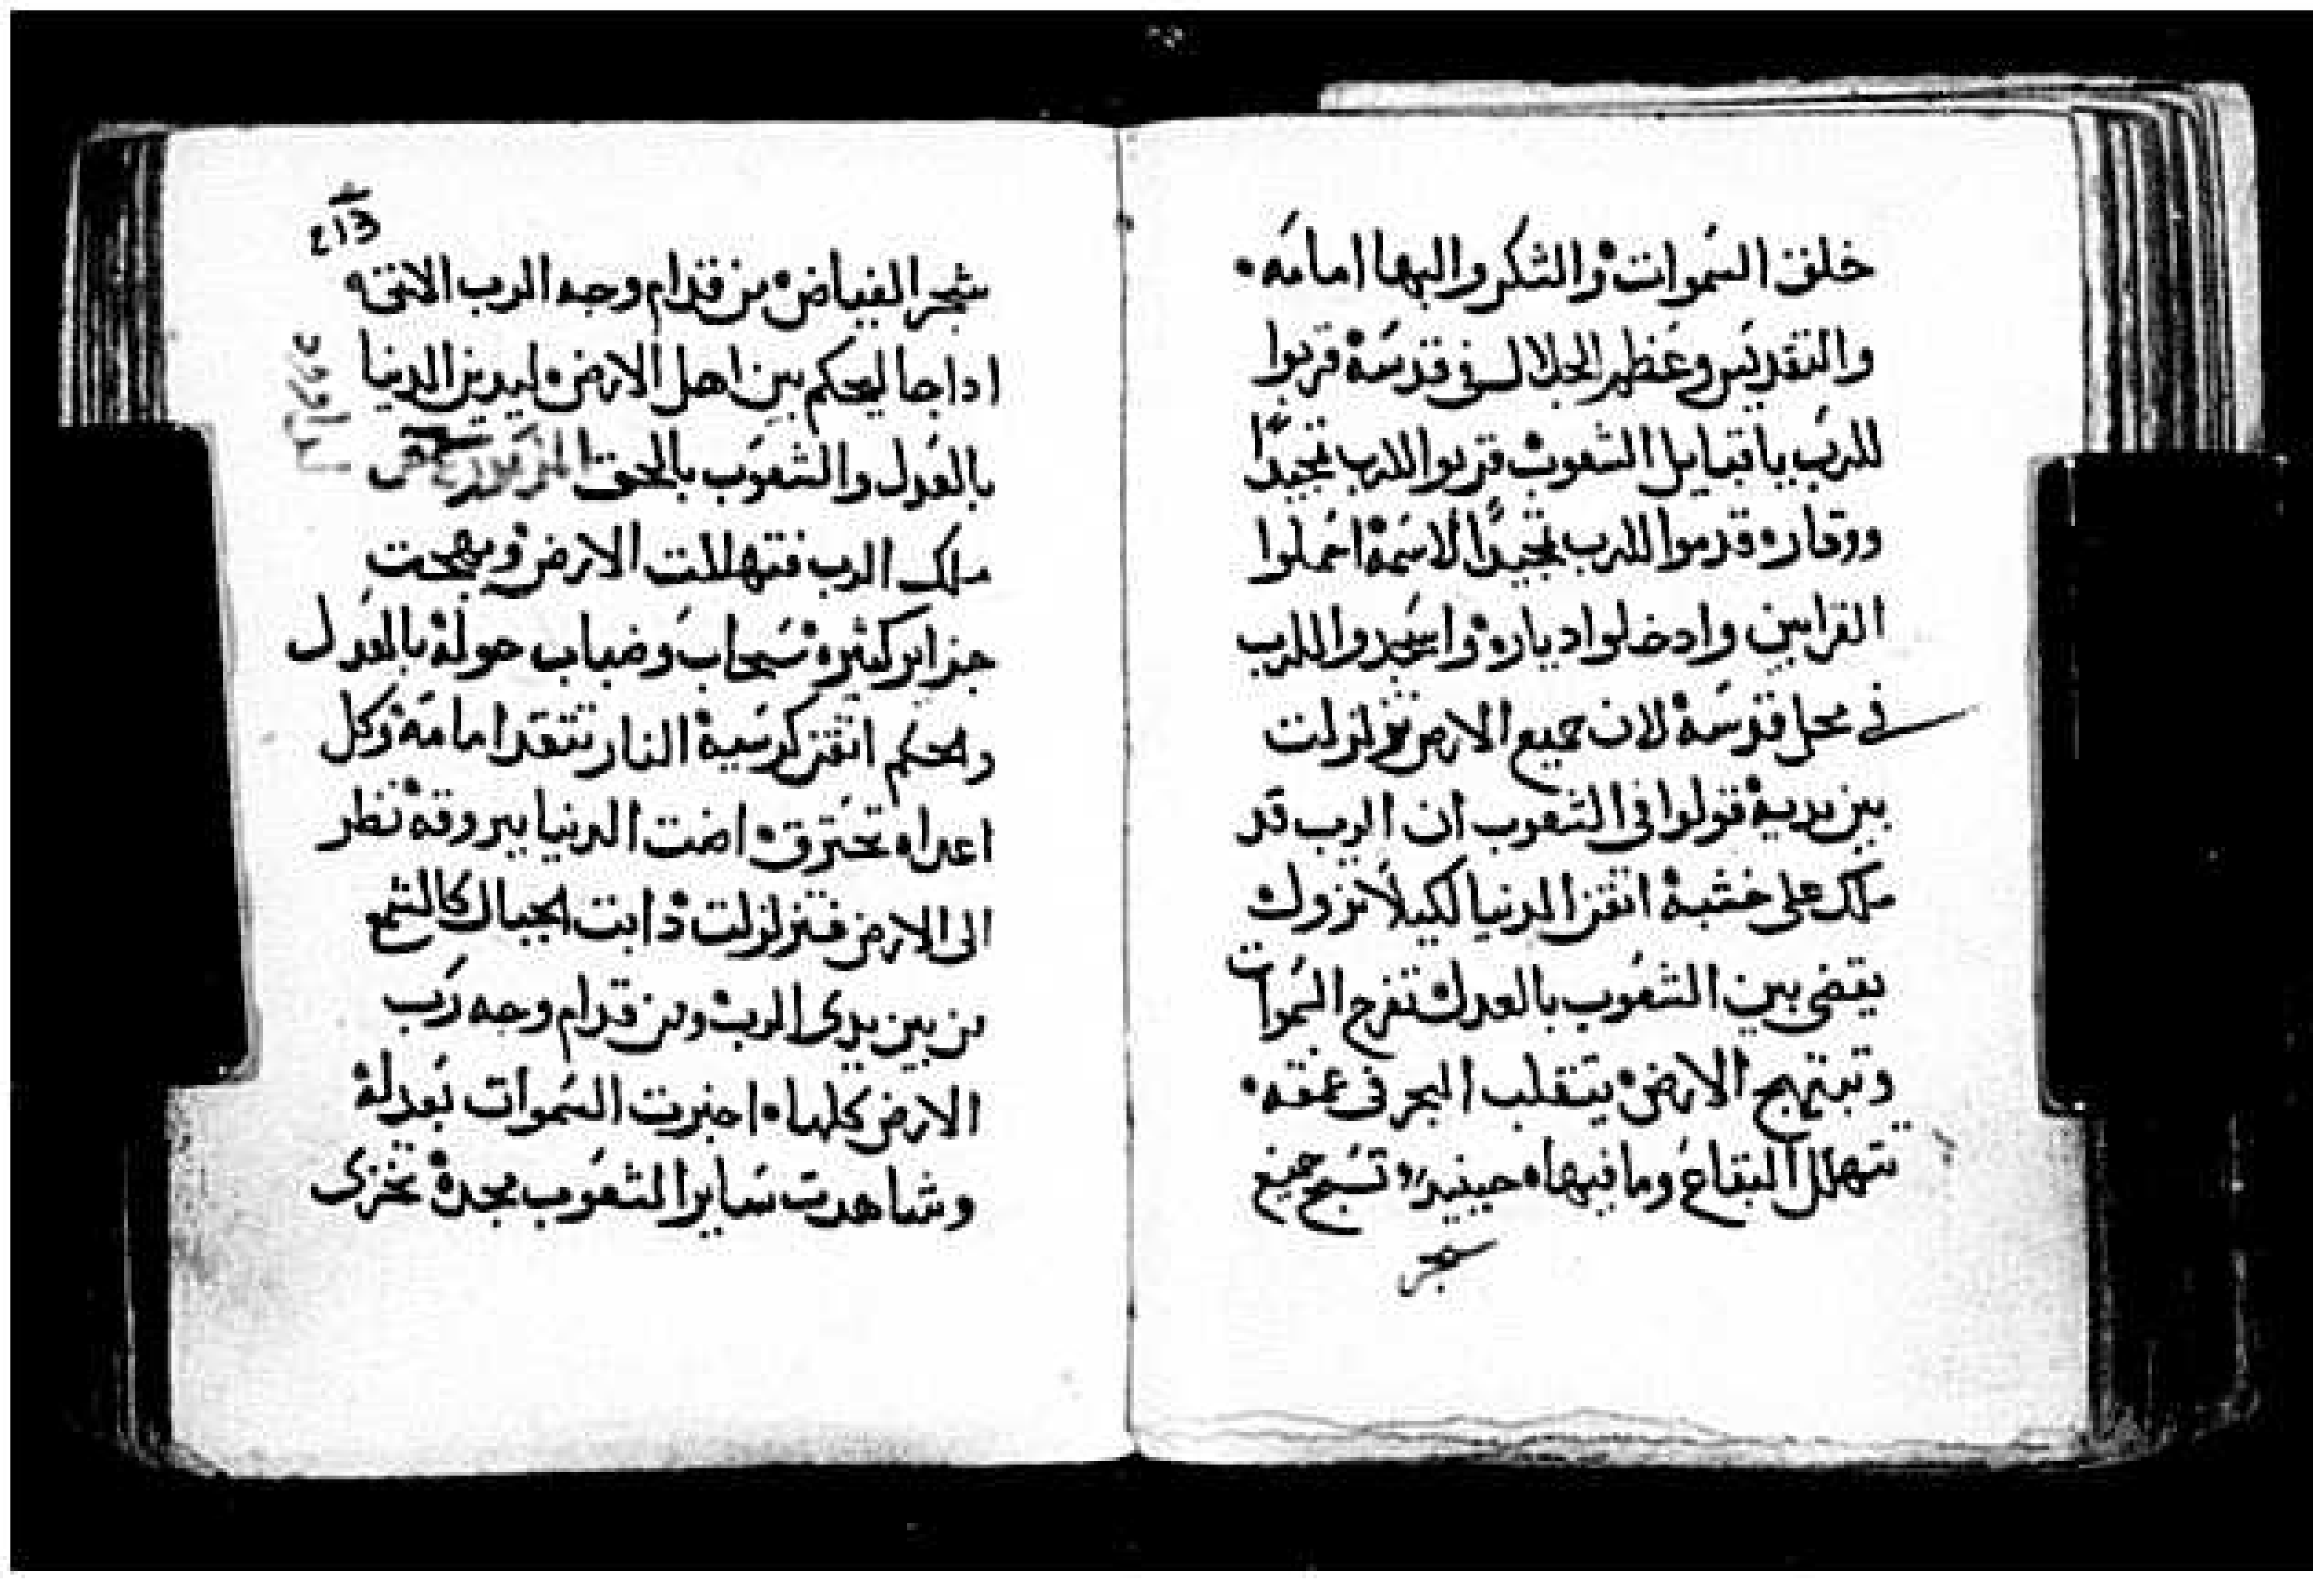 خلق السموات والشكر والبها امامه
والتقديس وعظم الجلال في قدسه قربوا
للرب يا قبايل الشعوب قربوا للرب تمجيدًا
ووقار قدموا للرب تمجيدًا لاسمه احملوا
القرابين وادخلوا دياره واسجدوا للرب
في محل قدسه لان جميع الارض تزلزلت
بين يديه قولوا في الشعوب ان الرب قد
ملك على خشبه اتقن الدنيا لكيلا تزول
يقضي بين الشعوب بالعدل تفرح السموات
وتبتهج الارض يتقلب البحر في عمقه
تتهلل البقاع وما فيها حينيد تسبح جميع
شجر
شجر الغياض من قدام وجه الرب الاتي
اذا جا ليحكم بين اهل الارض ليدين الدنيا
بالعدل والشعوب بالحق المزمور
ملك الرب فتهللت الارض وبهجت
جزاير كثيره سحاب وضباب حوله بالعدل
والحكم اتقن كرسيه النار تتقد امامه وكل
اعداه تحترق اضت الدنيا بيروقه نظر
الى الارض فتزلزلت ذابت الجبال كالشمع
من بين يدى الرب ومن قدام وجه رب
الارض كلها اخبرت السموات بعدله
وشاهدت ساير الشعوب مجده تخزى